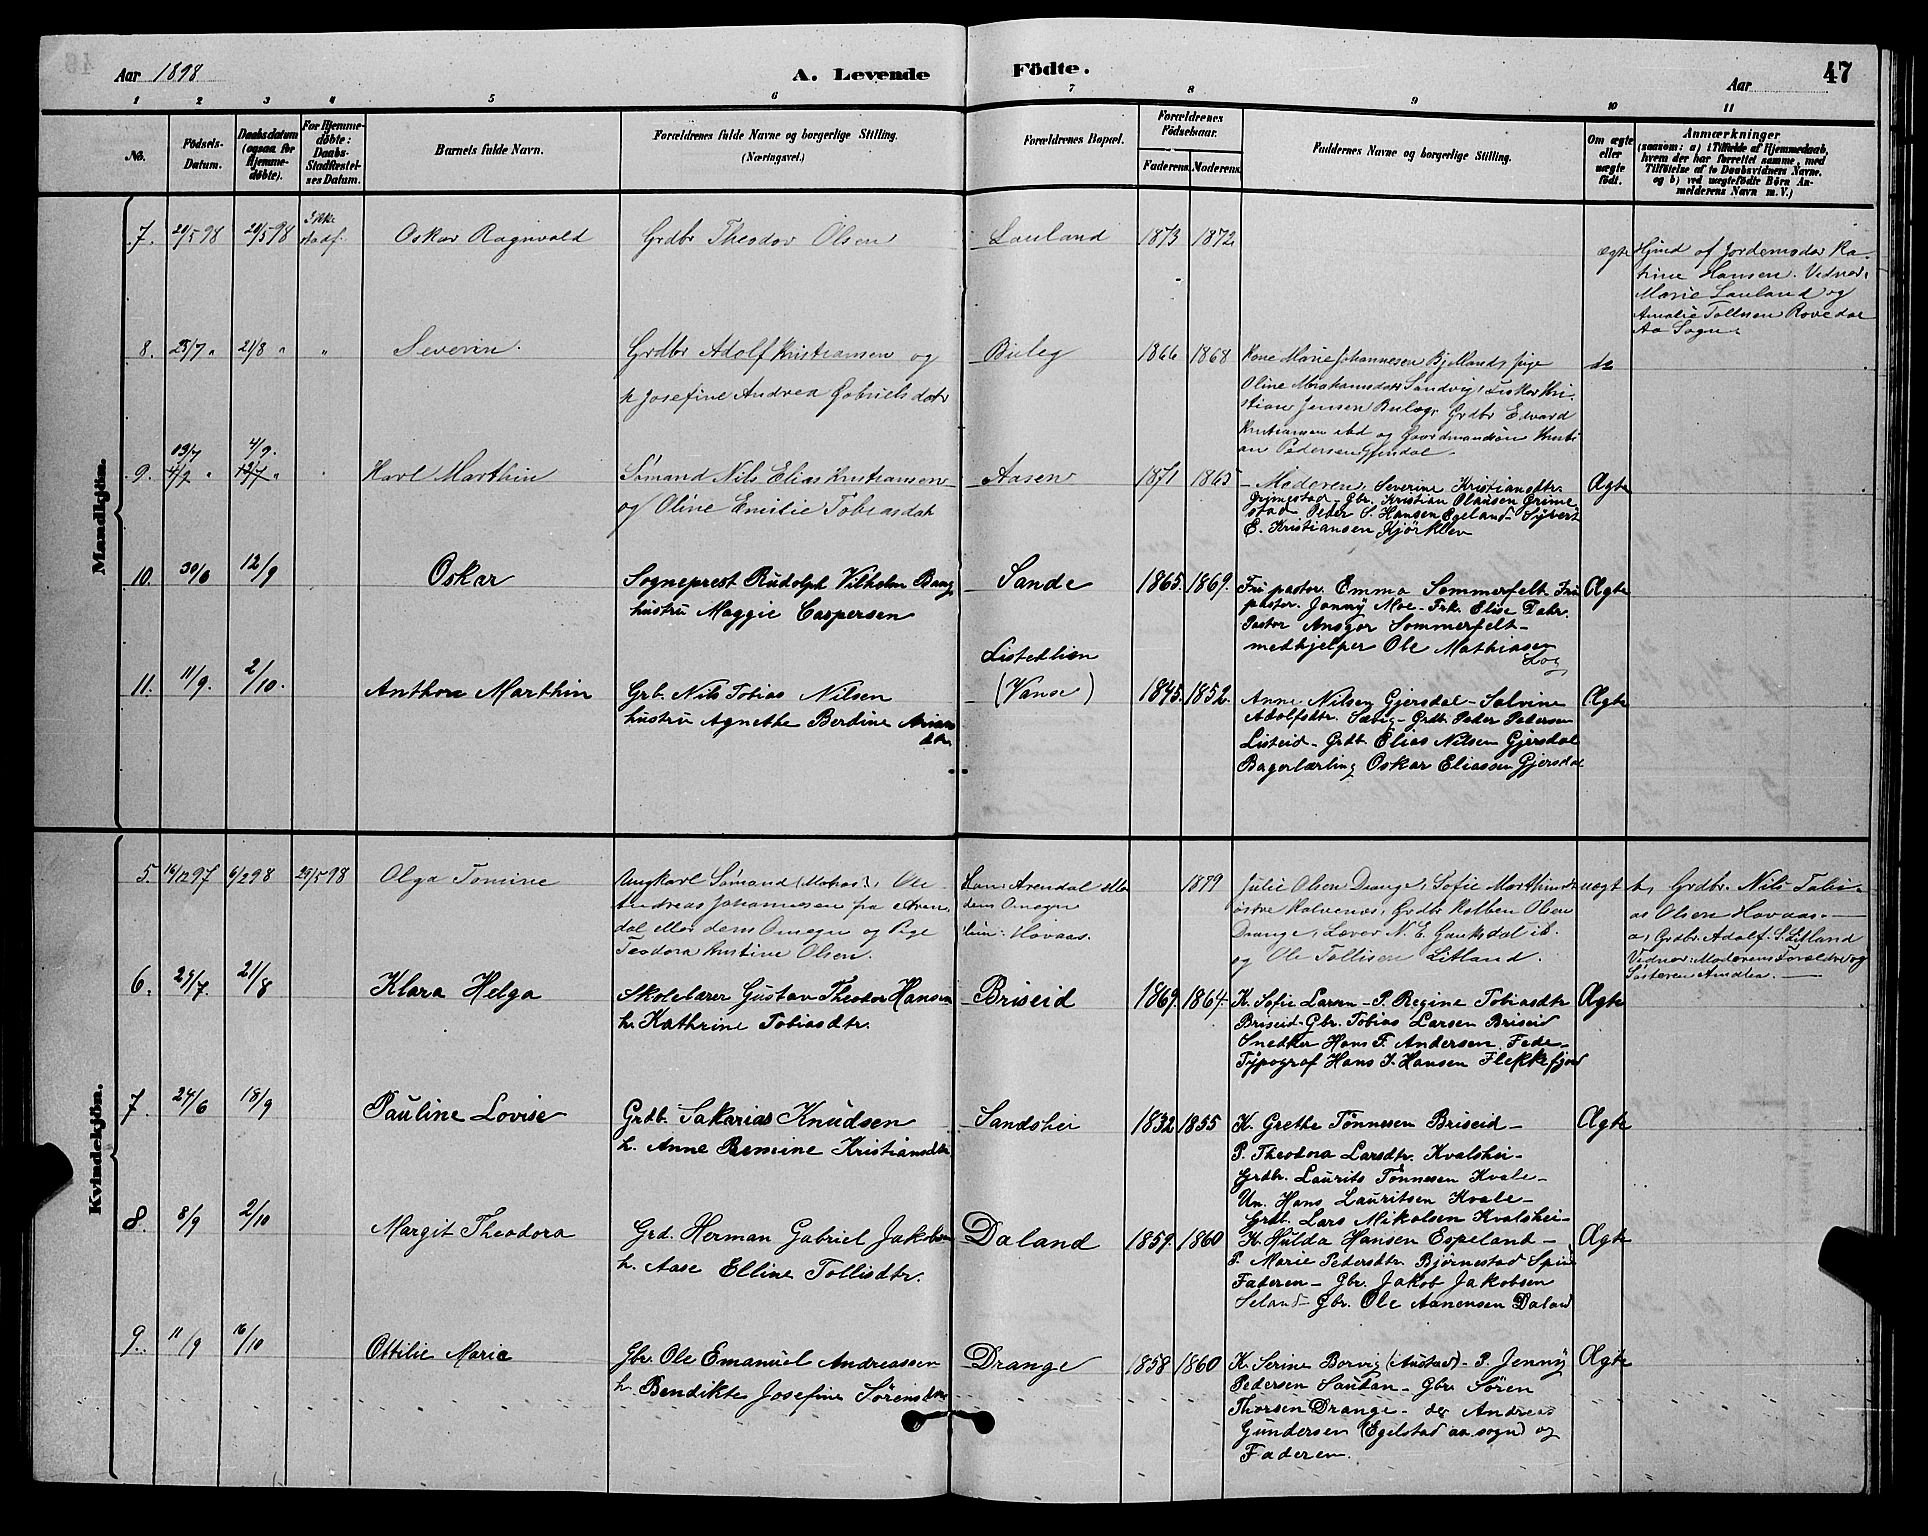 Aar 1898
A. Levende
Födte.
Aar
47
1 2 3 4 5 6 7 8 9 10 11
No.
Födsels-Datum.
Daabsdatum (ogsaa for Hjemme-døbte).
For Hjemme-døbte: Daabs-Stadfæstel-ses Datum.
Barnets fulde Navn.
Forældrenes fulde Navne og borgerlige Stilling.
(Næringsvei.)
Forældrenes Bopæl.
Forældrenes Födselsaar.
Faderens. Moderens.
Faddernes Navne og borgerlige Stilling.
Om ægte eller uægte født.
Anmærkninger
(saasom: a) i Tilfælde af Hjemmedaab,
hvem der har forrettet samme, med
Tilföielse af to Daabsvidners Navne,
og b) ved uægtefødte Börn An-
melderens Navn m. V.)
Mandkjön.
7. 20/5 98 20/5 98 Ikke stadf. Oskar Ragnvald
Grdbr Theodor Olsen
Lauland 1873 1872
Ægte
Hjmd af Jordemoder Ka-
trine Hansen. Vidner:
Marie Lauland og
Amalie Tollisen Rovedal
Aa Sogn.
8. 25/7 " 21/8 " " Severin.
Grdbr Adolf Kristiansen og
h Josefine Andrea Gabrielsdatr
Buleg 1866 1868
Kone Marie Johannesen Bjelland, pige
Oline Abrahamsdatr Sandvig, Fisker Kri-
stian Jensen Buleg, Grdbr Edvard
Kristiansen ibd og Gaardmandsön Kristi-
an Pedersen Gjendal.
do
9. 13/7 4/9 " 4/9. 13/7 " " Karl Marthin
Sömand Nils Elias Kristiansen
og Oline Emilie Tobiasdatr
Aasen 1871 1865
- Moderen Severine Kristiansdtr.
Grimestad - Gbr. Kristian Olausen Grime
stad Peder S. Hansen Egeland - Syvert
E. Kristiansen Kjörklev
Ægte
10. 30/6 12/9 Oskar
Sogneprest Rudolph Vilhelm Bang
hustru Maggie Caspersen
Sande 1865. 1869.
Fru pastor. Emma Sommerfelt Fru
pastor. Jenny Moe - Frk. Elise Dahr.
Pastor Ansgar Sommerfelt -
medhjelper Ole Mathiasen
Log
Ægte
11. 11/9. 2/10. Anthon Marthin
Grb. Nils Tobias Nilsen
hustru Agnethe Berdine Arian
dtr.
Listedlien
(Vanse) 1845. 1852.
Anne Nilsen Gjersdal - Salvine
Adolfsdtr. Sævig - Grdb. Peder Pedersen
Listeid - Grdb. Elias Nilsen Gjersdal
Bagerlærling Oskar Eliassen Gjersdal
Ægte
Kvindekjön.
5. 16/12 97 6/2 98 29/5 98 Olga Tomine
Ungkarl Sömand (Matros), Ole
Andreas Johannesen fra Aren
dal eller dens Omegn og Pige
Teodora Kristine Olsen.
Han: Arendal eller
dens Omegn
hun: Hovaas.
1879
Julie Olsen Drange, Sofie Marthinsdtr
östre Halvenes, Grdbr Kolben Olsen
Drange, Lærer N. E. Gauksdal ib.
og Ole Tollisen Litland.
uægt
b, Grdbr. Nils Tobi-
as Olsen Hovaas. -
a, Grdbr. Adolf S. Litland
Vidner: Moderens Forældre og
Søsteren Amalia. -
6. 29/7. 21/8 Klara Helga
Skolelærer Gustav Theodor Hansen
h. Kathrine Tobiasdtr.
Briseid 1869. 1864.
K. Sofie Larsen - P. Regine Tobiasdtr
Briseid - Gbr. Tobias Larsen Briseid
Snedker Hans F. Andersen. Fede -
Typograf Hans J. Hansen Flekkefjord
Ægte
7. 24/6 18/9 Pauline Lovise
Grdb. Sakarias Knudsen
h. Anne Bemine Kristiansdtr
Sandshei 1832 1855
K. Grethe Tönnesen Briseid -
P. Theodora Larsdtr. Kvalshei -
Grdbr. Laurits Tönnesen Kvale -
Un. Hans Lauritsen Kvale -
Grdb. Lars Mikalsen Kvalshei -
Ægte
8. 8/9 2/10 Margit Theodora
Grd. Herman Gabriel Jakobsen
h. Aase Elline Tollisdtr.
Daland 1859. 1860
K. Hulda Hansen Espeland -
P. Marie Pedersdtr. Björnestad Spin
Faderen - Gbr. Jakob Jakobsen
Seland - Gbr. Ole Aanensen Daland
Ægte
9. 11/9 16/10 Ottilie Marie
Gbr. Ole Emanuel Andreassen
h. Bendikte Josefine Sörensdtr
Drange 1858 1860
K. Serine Borvig (Austad) - P. Jenny
Pedersen Saudan - Gbr Sören
Thorsen Drange - do Andreas
Gundersen (Egelstad aa sogn) og
Faderen.
Ægte